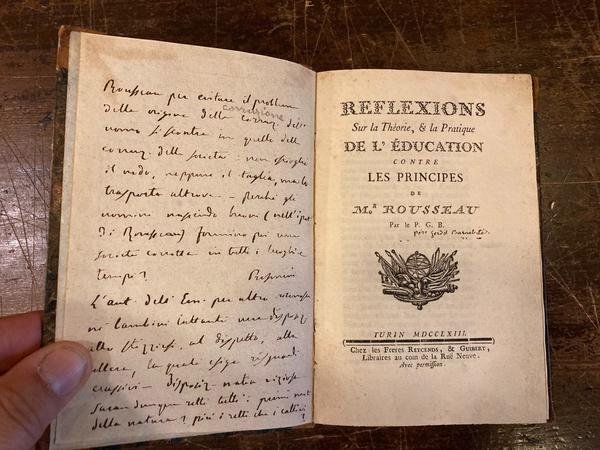 Rousseau per evitare il problema
della origine della corruz. dell'
corruzione
uomo s'incontra in quello della
corruz. della società: non iscioglie
il nodo, neppure il taglia, ma lo
trasporta altrove. — perchè gli
uomini nascendo buoni (nell'ipot.
di Rousseau) formino poi una
società corrotta in tutti i luoghi e
tempi?
Rosmini
L'aut. dell' Em. per altro
ne' bambini lattanti una disposiz.
alla stizza, al dispetto, alla
collera, la quale esige riguardi
— disposiz. natia viziosa
Saran dunque retti tutti i primi mot
della natura? più i retti che i cattivi?
REFLEXIONS
Sur la Théorie, & la Pratique
DE L' ÉDUCATION
CONTRE
LES PRINCIPES
DE
M.R ROUSSEAU
Par le P. G. B.
père Gerdil Barnabite
TURIN MDCCLXIII.
Chez les Freres REYCENDS, & GUIBERT,
Libraires au coin de la Ruë Neuve.
Avec permission.